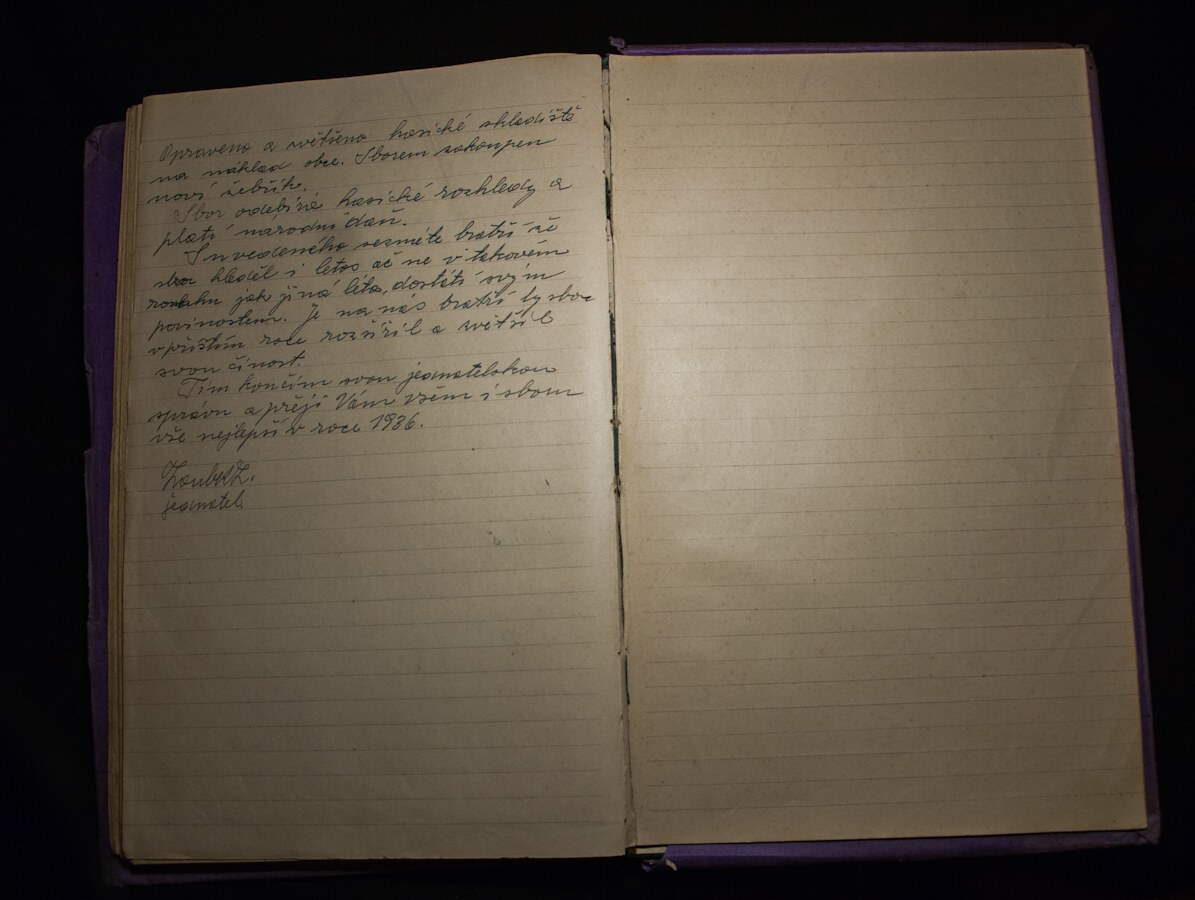 Opraveno a zvětšeno hasické skladiště
na náklad obce. Sborem zakoupen
nový žebřík.
Sbor odebírá hasické rozhledy a
platí národní daň.
Z uvedeného seznáte bratři že
sbor hleděl i letos ač ne v takovém
rozsahu jak jiná léta, dostáti svým
povinostem. Je na nás bratři by sbor
v příštím roce rozšířil a zvětšil
svou činost.
Tím končím svou jednatelskou
správu a přeji Vám všem i sboru
vše nejlepší v roce 1936.
jednatel